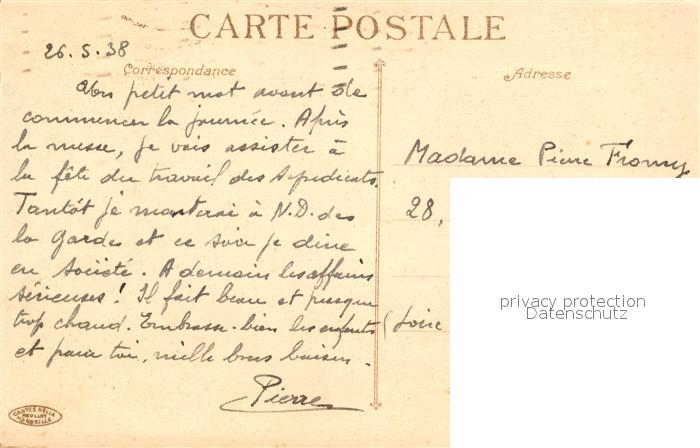 CARTE POSTALE
26.5.38
Correspondance
Adresse
Un petit mot avant de
commencer la journée. Après
la messe, je vais assister à
la fête du travail des Syndicats.
Tantôt je monterai à N.D. de
la Gardes et ce soir je dîne
en Société. A demain les affaires
sérieuses! Il fait beau et presque
trop chaud. Embrasse-bien les enfants
et pour toi, mille bons baisers-
Pierre
Madame Pierre Fromy
28,
(Loire
privacy protection
Datenschutz
CARTES NELLA
MARSEILLE